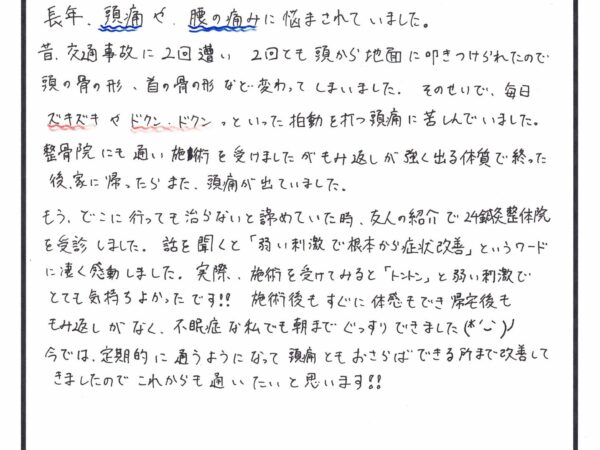 長年、頭痛や、腰の痛みに悩まされていました。
昔、交通事故に2回遭い 2回とも頭から地面に叩きつけられたので
頭の骨の形、首の骨の形など変わってしまいました。そのせいで、毎日
ズキズキやドクン、ドクンっといった拍動を打つ頭痛に苦しんでいました。
整骨院にも通い施術を受けましたがもみ返しが強く出る体質で終った
後、家に帰ったらまた、頭痛が出ていました。
もう、どこに行っても治らないと諦めていた時、友人の紹介で24鍼灸整体院
を受診しました。話を聞くと「弱い刺激で根本から症状改善」というワード
に凄く感動しました。実際、施術を受けてみると「トントン」と弱い刺激で
とても気持ちよかったです!! 施術後もすぐに体感もでき帰宅後も
もみ返しがなく、不眠症な私でも朝までぐっすりできました(*'ー')ノ
今では、定期的に通うようになって頭痛ともおさらばできる所まで改善して
きましたのでこれからも通いたいと思います!!